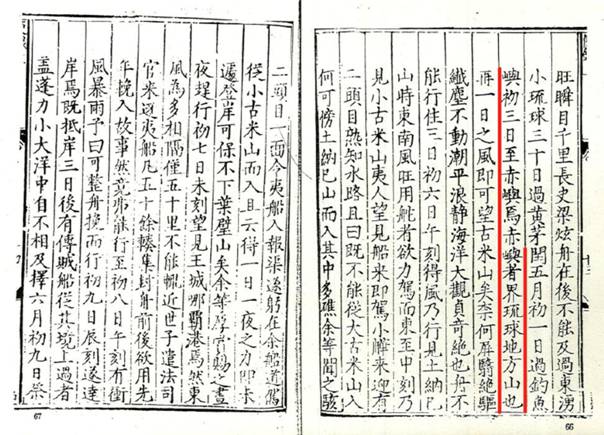 旺瞬目千里長史梁炫舟在後不能及過東湧
小琉球三十日過黃茅閏五月初一日過釣魚
嶼初三日至赤嶼焉赤嶼者界琉球地方山也
再一日之風即可望古米山矣奈何屏翳絕驅
纖塵不動潮平浪靜海洋大觀真奇絕也舟不
能行住三日初六日午刻得風乃行見土納已
山時東南風旺用舵者欲力駕而東至申刻乃
見小古米山夷人望見船來即駕小來迎有
二頭目熟知水路且曰既不能從大古米山入
何可傍土納已山而入其中多礁余等聞之駭
66
二頭目一面令夷船入報渠遂躬在余船道駕
從小古米山而入且云得一日一夜之力即未
遽登岸可保不下葉壁山矣余等厚賞賜之晝
夜趕行初七日未刻望見王城那覇港焉然東
風為多相隔僅五十里不能輒近世子遣法司
官來迓夷船凡五十餘輳集封舟前後欲用先
年挽入故事然竟弗能行至初八日午刻有衝
風暴雨予曰可整舟挽而行初九日辰刻遂達
岸焉既抵岸三日後有傳賊船從其境上過者
蓋蓬力小大洋中自不相及擇六月初九日祭
67